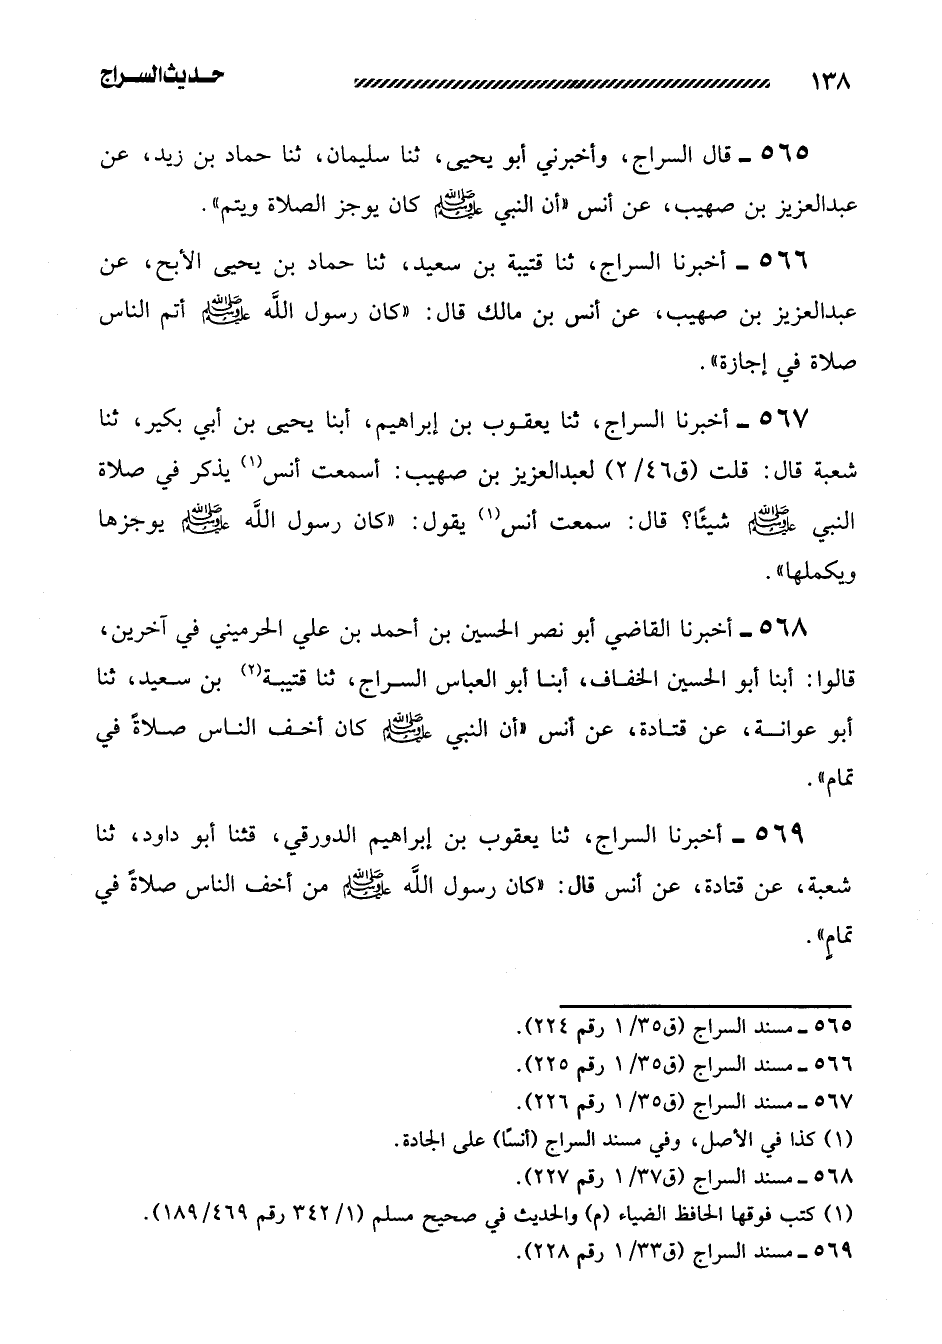 ١٣٨ حـديث السـراج
٥٦٥ ـ قال السراج، وأخبرني أبو يحيى، ثنا سليمان، ثنا حماد بن زيد، عن
عبدالعزيز بن صهيب، عن أنس «أن النبي ﷺ كان يوجز الصلاة ويتم».
٥٦٦ ـ أخبرنا السراج، ثنا قتيبة بن سعيد، ثنا حماد بن يحيى الأبح، عن
عبدالعزيز بن صهيب، عن أنس بن مالك قال: «كان رسول اللَّه ﷺ أتم الناس
صلاة في إجازة».
٥٦٧ ـ أخبرنا السراج، ثنا يعقـوب بن إبراهيم، أبنا يحيى بن أبي بكير، ثنا
شعبة قال: قلت (ق٤٦/ ٢) لعبدالعزيز بن صهيب: أسمعت أنس(١) يذكر في صلاة
النبي ﷺ شيئًا؟ قال: سمعت أنس(١) يقول: «كان رسول اللَّه ﷺ يوجزها
ويكملها».
٥٦٨ ـ أخبرنا القاضي أبو نصر الحسين بن أحمد بن علي الحرميني في آخرين،
قالوا: أبنا أبو الحسين الخفـاف، أبنـا أبو العباس السـراج، ثنا قتيبـة(٢) بن سـعيد، ثنا
أبو عوانـة، عن قتـادة، عن أنس «أن النبي ﷺ كان أخـف النـاس صـلاةً في
تمام».
٥٦٩ ـ أخبرنا السراج، ثنا يعقوب بن إبراهيم الدورقي، قثنا أبو داود، ثنا
شعبة، عن قتادة، عن أنس قال: «كان رسول اللَّه ﷺ من أخف الناس صلاةً في
تمامٍ».
٥٦٥ ـ مسند السراج (ق٣٥/ ١ رقم ٢٢٤).
٥٦٦ ـ مسند السراج (ق٣٥/ ١ رقم ٢٢٥).
٥٦٧ ـ مسند السراج (ق٣٥/ ١ رقم ٢٢٦).
(١) كذا في الأصل، وفي مسند السراج (أنسًا) على الجادة.
٥٦٨ ـ مسند السراج (ق٣٧/ ١ رقم ٢٢٧).
(١) كتب فوقها الحافظ الضياء (م) والحديث في صحيح مسلم (١/ ٣٤٢ رقم ٤٦٩/ ١٨٩).
٥٦٩ ـ مسند السراج (ق٣٣/ ١ رقم ٢٢٨).